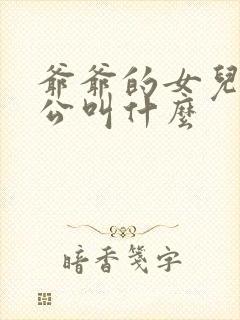 爺爺的女兒
公叫什麼
暗香箋字